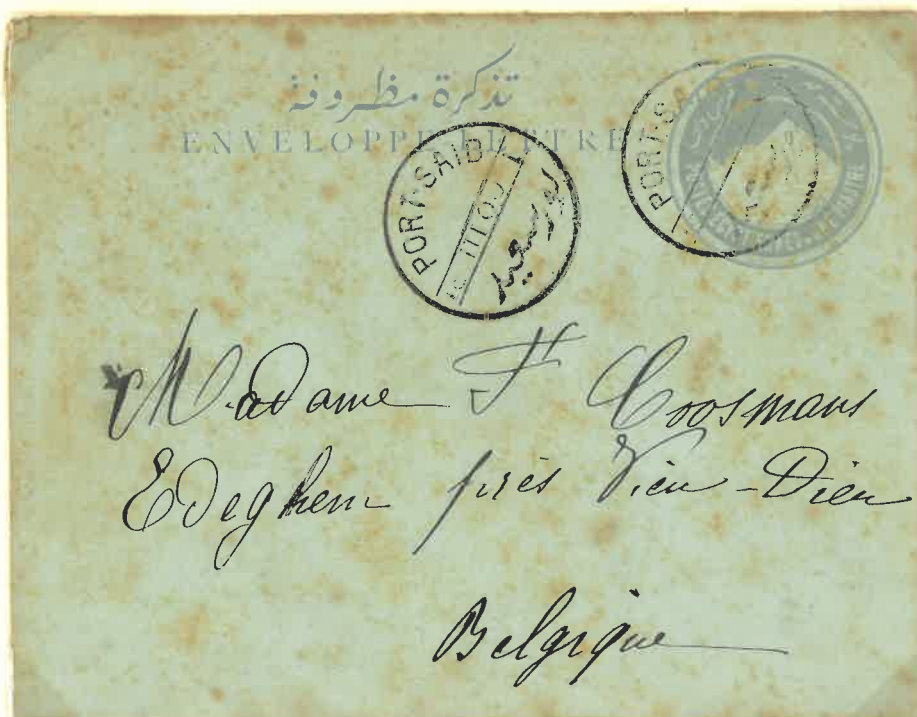 تذكرة مظروفة
ENVELOPPE-LETTRE
PORT-SAID
III 00
بور سعيد
PORT-SA
Madame F Coosmans
Edeghem près Vieu-Dieu
Belgique